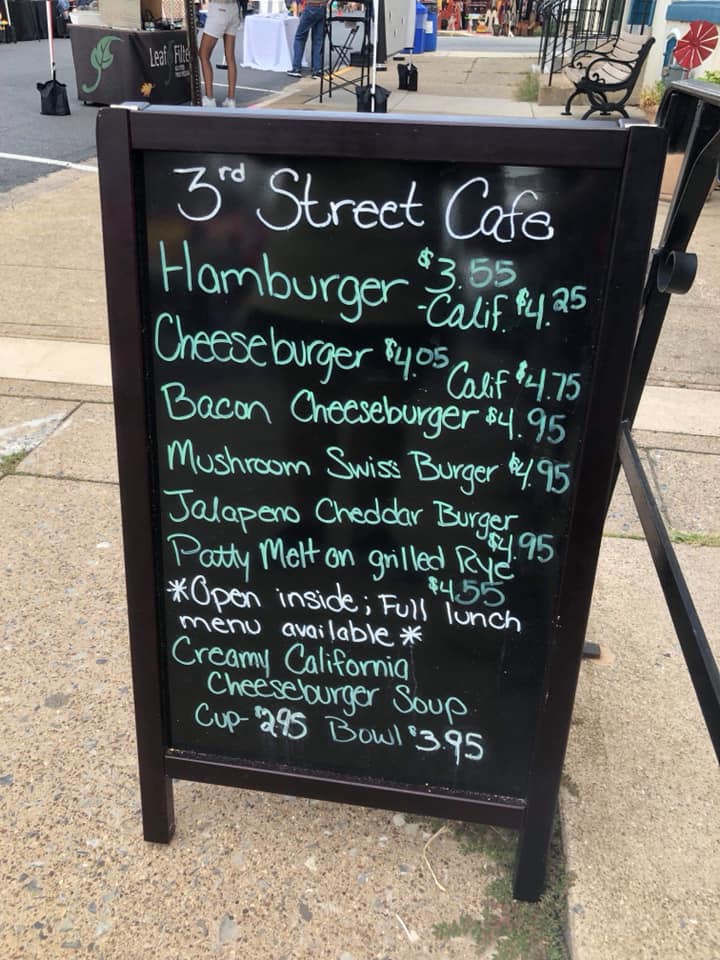 Leaf Filte
3rd Street Cafe
Hamburger $3.55
-Calif. $4.25
Cheeseburger $4.05
Calif $4.75
Bacon Cheeseburger $4.95
Mushroom Swiss Burger $4.95
Jalapeno Cheddar Burger
$4.95
Patty Melt on grilled Rye
$4.55
*Open inside; Full lunch
menu available*
Creamy California
Cheeseburger Soup
Cup- $2.95 Bowl $3.95